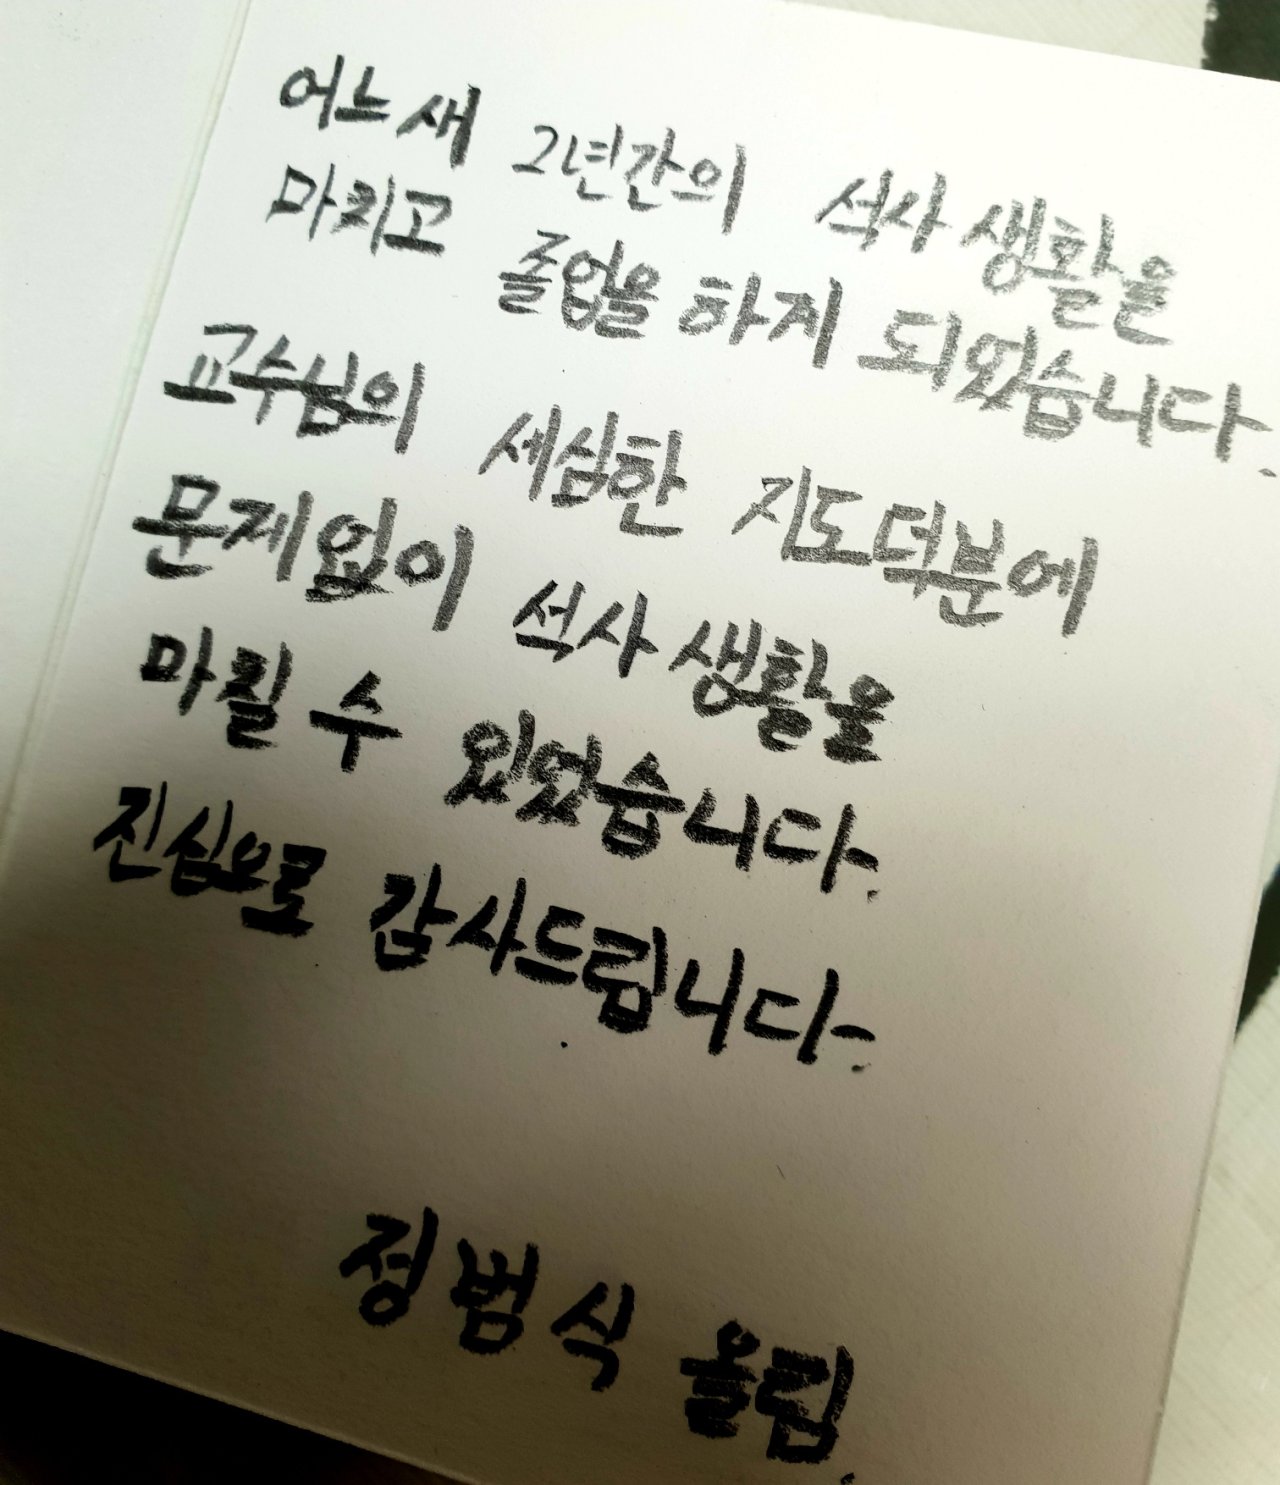 어느새 2년간의 석사 생활을
마치고 졸업을 하게 되었습니다.
교수님의 세심한 지도덕분에
문제없이 석사 생활을
마칠 수 있었습니다.
진심으로 감사드립니다.
정범식 올림.